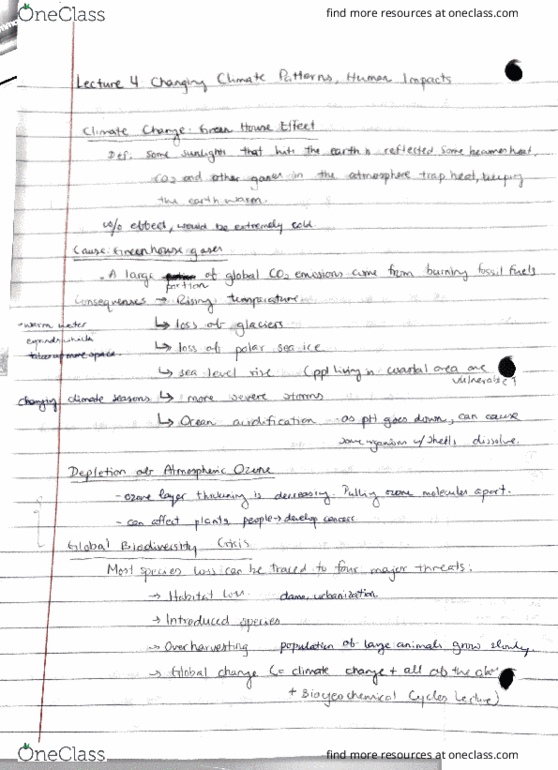 OneClass find more resources at oneclass.com
Lecture 4 Changing Climate Patterns, Human Impacts
Climate Change: Green House Effect
Def: Some sunlights that hits the earth is reflected some becomes heat,
CO2 and other gases in the atmosphere trap heat, keeping
the earth warm.
w/o effect, would be extremely cold.
Cause: Greenhouse gases
A large portion of global CO2 emissions come from burning fossil fuels
Consequences → Rising temperature
- warm water ↳ loss of glaciers
expands which
takes up more space ↳ loss of polar sea ice
↳ sea level rise (ppl living in coastal area are
vulnerable)
changing climate seasons ↳ more severe storms
↳ Ocean acidification - as pH goes down, can cause
some organism w/ shells dissolve.
Depletion of Atmospheric Ozone
- ozone layer thickening is decreasing. Pulling ozone molecules apart.
- can affect plants, people → develop cancer
Global Biodiversity Crisis
Most species loss can be traced to four major threats:
→ Habitat loss dams, urbanization
→ Introduced species
→ Overharvesting population of large animals grow slowly
→ Global change (= climate change + all of the
+ Biogeochemical Cycles Lecture)
OneClass find more resources at oneclass.com